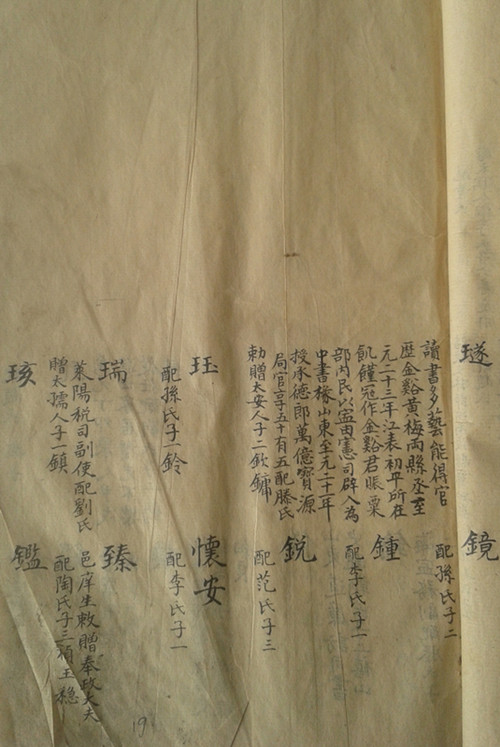 璲
讀書多藝能得官
歷金谿黃梅兩縣丞至
元二十三年江表初平所在
飢饉寇作金谿君賬粟
部內民以寍粤憲司辟入為
中書椽山東至元二十一年
授承德郎萬億寶源
局官享五十有五配滕氏
勅贈太安人子二欽鏞
珏
配孫氏子一鈴
瑞
萊陽税司副使配劉氏
贈太孺人子一鎮
㺹
鏡
配孫氏子二
鍾
配李氏子一
鋭
配范氏子三
懷安
配李氏子一
臻
邑庠生敕贈奉政大夫
配陶氏子三禎玉穩
鑑
19